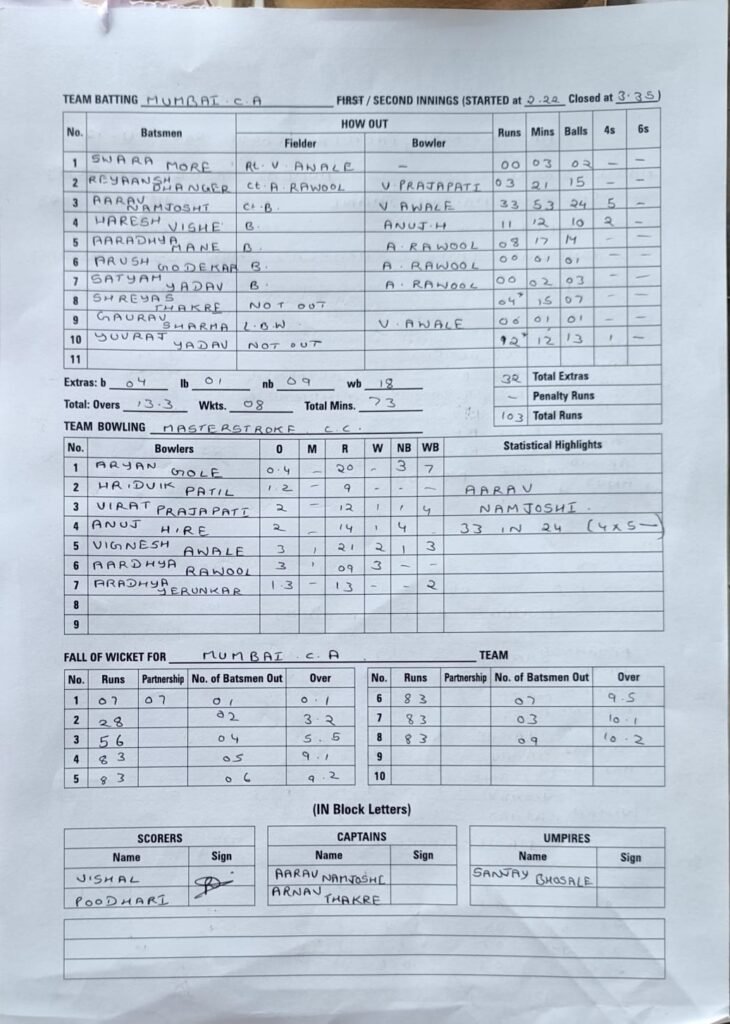 TEAM BATTING MUMBAI . C . A FIRST / SECOND INNINGS (STARTED at 2.22 Closed at 3.35)
No. Batsmen HOW OUT Runs Mins Balls 4s 6s
Fielder Bowler
1 SWARA MORE Rt. V. AWALE — 00 03 02 — —
2 REYAANSH DHANGER Ct. A. RAWOOL V. PRAJAPATI 03 21 15 - —
3 AARAV NAMJOSHI Ct. B. V. AWALE 33 53 24 5 —
4 HARESH VISHE B. ANUJ.H 11 12 10 2 —
5 AARADHYA MANE B. A. RAWOOL 08 17 14 - —
6 ARUSH GODEKAR B. A. RAWOOL 00 01 01 - —
7 SATYAM YADAV B. A. RAWOOL 00 02 03 - —
8 SHREYAS THAKRE NOT OUT 04* 15 07 - —
9 GAURAV SHARMA L.B.W. V. AWALE 00 01 01 - —
10 YUVRAJ YADAV NOT OUT 12* 12 13 1 —
11
Extras: b 04 lb 01 nb 09 wb 18 32 Total Extras
- Penalty Runs
Total: Overs 13.3 Wkts. 08 Total Mins. 73 103 Total Runs
TEAM BOWLING MASTERSTROKE C.C.
No. Bowlers O M R W NB WB Statistical Highlights
1 ARYAN GOLE 0.4 — 20 - 3 7
2 HRIDVIK PATIL 1.2 - 9 - - - AARAV
3 VIRAT PRAJAPATI 2 — 12 1 1 4 NAMJOSHI.
4 ANUJ HIRE 2 - 14 1 4 . 33 IN 24 (4x5—)
5 VIGNESH AWALE 3 1 21 2 1 3
6 AARDHYA RAWOOL 3 1 09 3 - -
7 ARADHYA YERUNKAR 1.3 - 13 - - 2
8
9
FALL OF WICKET FOR MUMBAI . C. A TEAM
No. Runs Partnership No. of Batsmen Out Over No. Runs Partnership No. of Batsmen Out Over
1 07 07 01 0.1 6 83 07 9.5
2 28 02 3.2 7 83 03 10.1
3 56 04 5.5 8 83 09 10.2
4 83 05 9.1 9
5 83 06 9.2 10
(IN Block Letters)
SCORERS CAPTAINS UMPIRES
Name Sign Name Sign Name Sign
VISHAL AARAV NAMJOSHI SANJAY BHOSALE
POODHARI ARNAV THAKRE